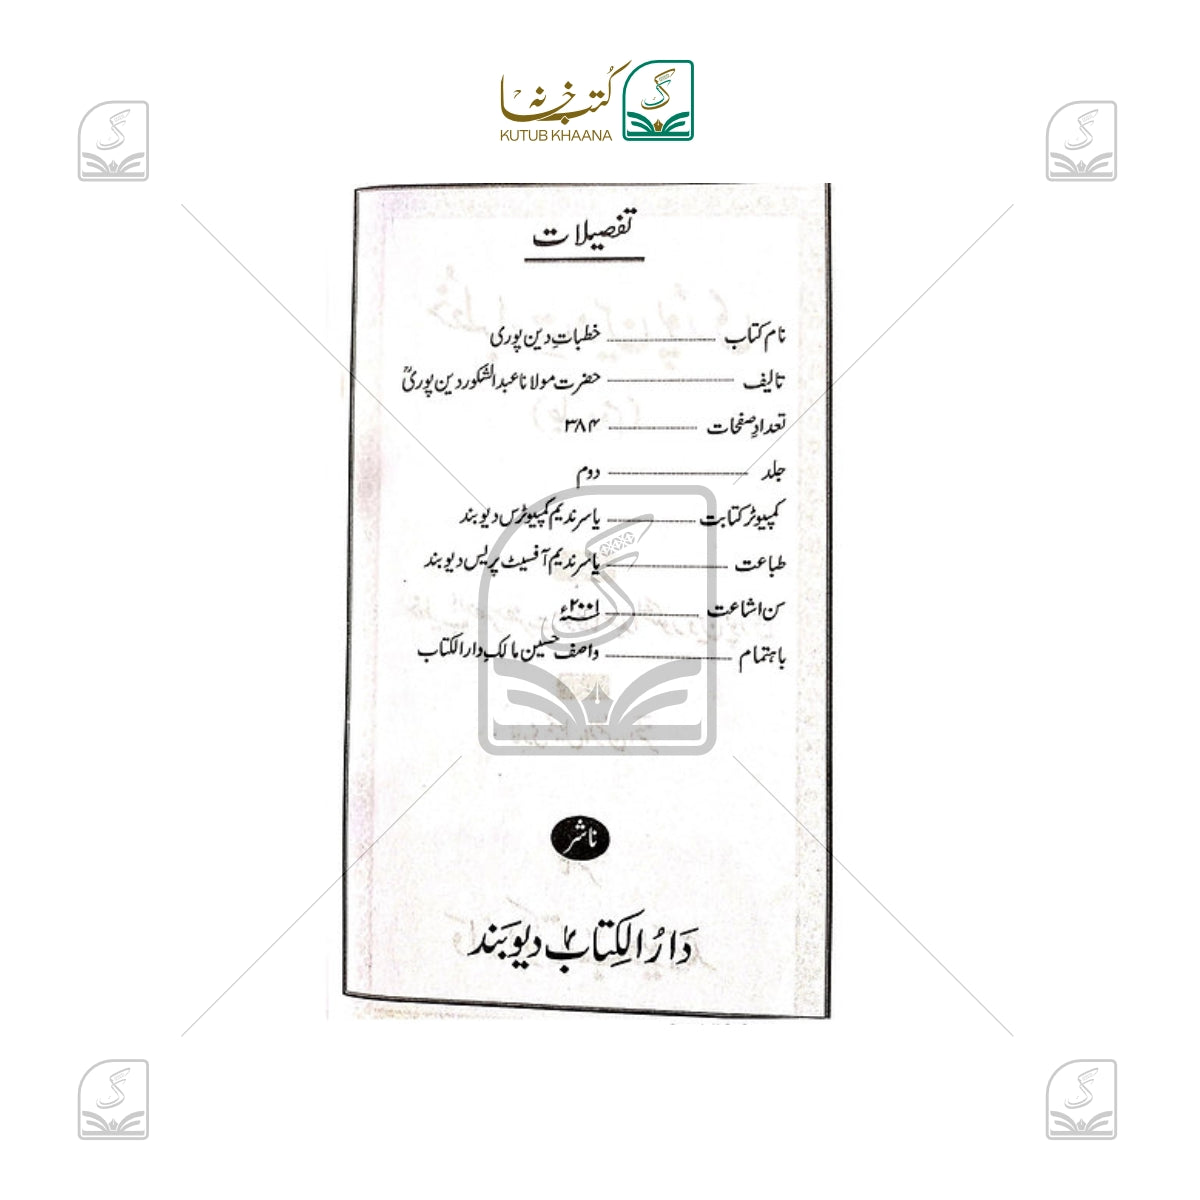 کتب خانہ
KUTUB KHAANA
تفصیلات
نام کتاب ............ خطباتِ دین پوری
تالیف ............ حضرت مولانا عبدالشکور دین پوریؒ
تعدادِ صفحات ............ ۳۸۴
جلد ............ دوم
کمپیوٹر کتابت ............ یاسر ندیم کمپیوٹرس دیوبند
طباعت ............ یاسر ندیم آفسیٹ پریس دیوبند
سن اشاعت ............ ۲۰۰۱ء
باہتمام ............ واصف حسین مالک دارالکتاب
ناشر
دَارُ الکِتَاب دیوبَند